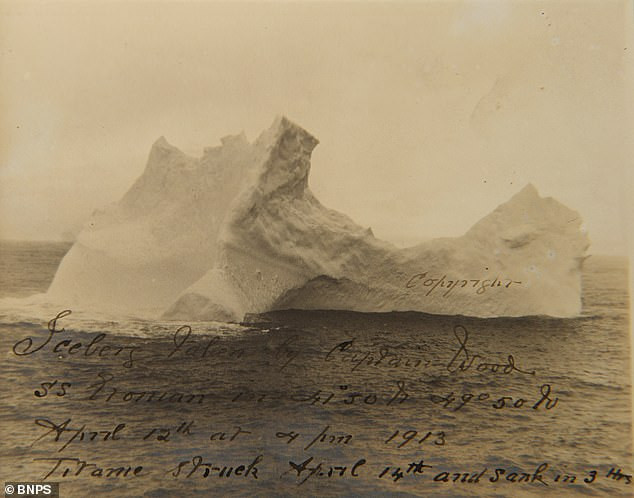 Copyright
Iceberg Taken by Captain Wood
SS Etonian in 41°50 N 49°50 W
April 12th at 4 pm 1913
Titanic Struck April 14th and Sank in 3 Hrs
© BNPS